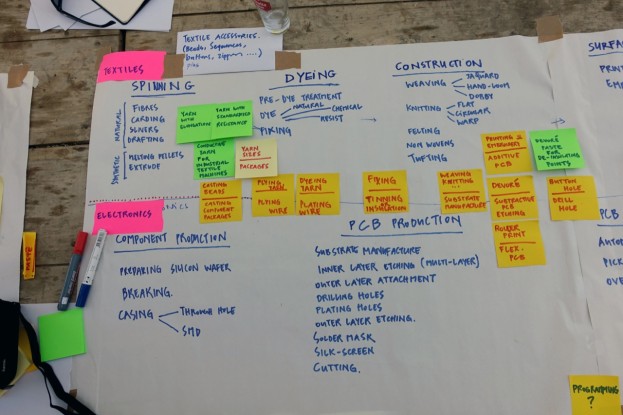 TEXTILE ACCESSORIES.
(Beads, Sequences,
buttons, zippers ....)
pins
TEXTILES
SPINNING
NATURAL
FIBRES
CARDING
SLIVERS
DRAFTING
SYNTHETIC
MELTING PELLETS
EXTRUDE
YARN WITH
YARN WITH
RESISTANCE
CONDUCTIVE
YARN FOR
INDUSTRIAL
TEXTILE
MACHINES
YARN
SIZES
PACKAGES
DYEING
PRE-DYE TREATMENT
DYE
NATURAL
CHEMICAL
RESIST
FIXING
CONSTRUCTION
WEAVING
JAQUARD
HAND-LOOM
DOBBY
KNITTING
FLAT
CIRCULAR
WARP
FELTING
NON WOVENS
TUFTING
PRINTING &
EMBROIDERY
ADDITIVE
PCB
DEVORÉ
PASTE FOR
DE-INSULATING
POINTS
CASTING
BEADS
CASTING
COMPONENT
PACKAGES
PLYING YARN
PLYING WIRE
DYEING YARN
PLATING
WIRE
FIXING
TINNING
INSULATION
WEAVING
KNITTING ...
SUBSTRATE
MANUFACTURE
DEVORÉ
SUBTRACTIVE
PCB
ETCHING
BUTTON
HOLE
DRILL
HOLE
PRINT
FLEX.
PCB
ELECTRONICS
COMPONENT PRODUCTION
PREPARING SILICON WAFER
BREAKING.
CASING
THROUGH HOLE
SMD
PCB PRODUCTION
SUBSTRATE MANUFACTURE
INNER LAYER ETCHING (MULTI-LAYER)
OUTER LAYER ATTACHMENT
DRILLING HOLES
PLATING HOLES
OUTER LAYER ETCHING.
SOLDER MASK
SILK-SCREEN
CUTTING.
PCB
PICK
PROGRAMMING
?